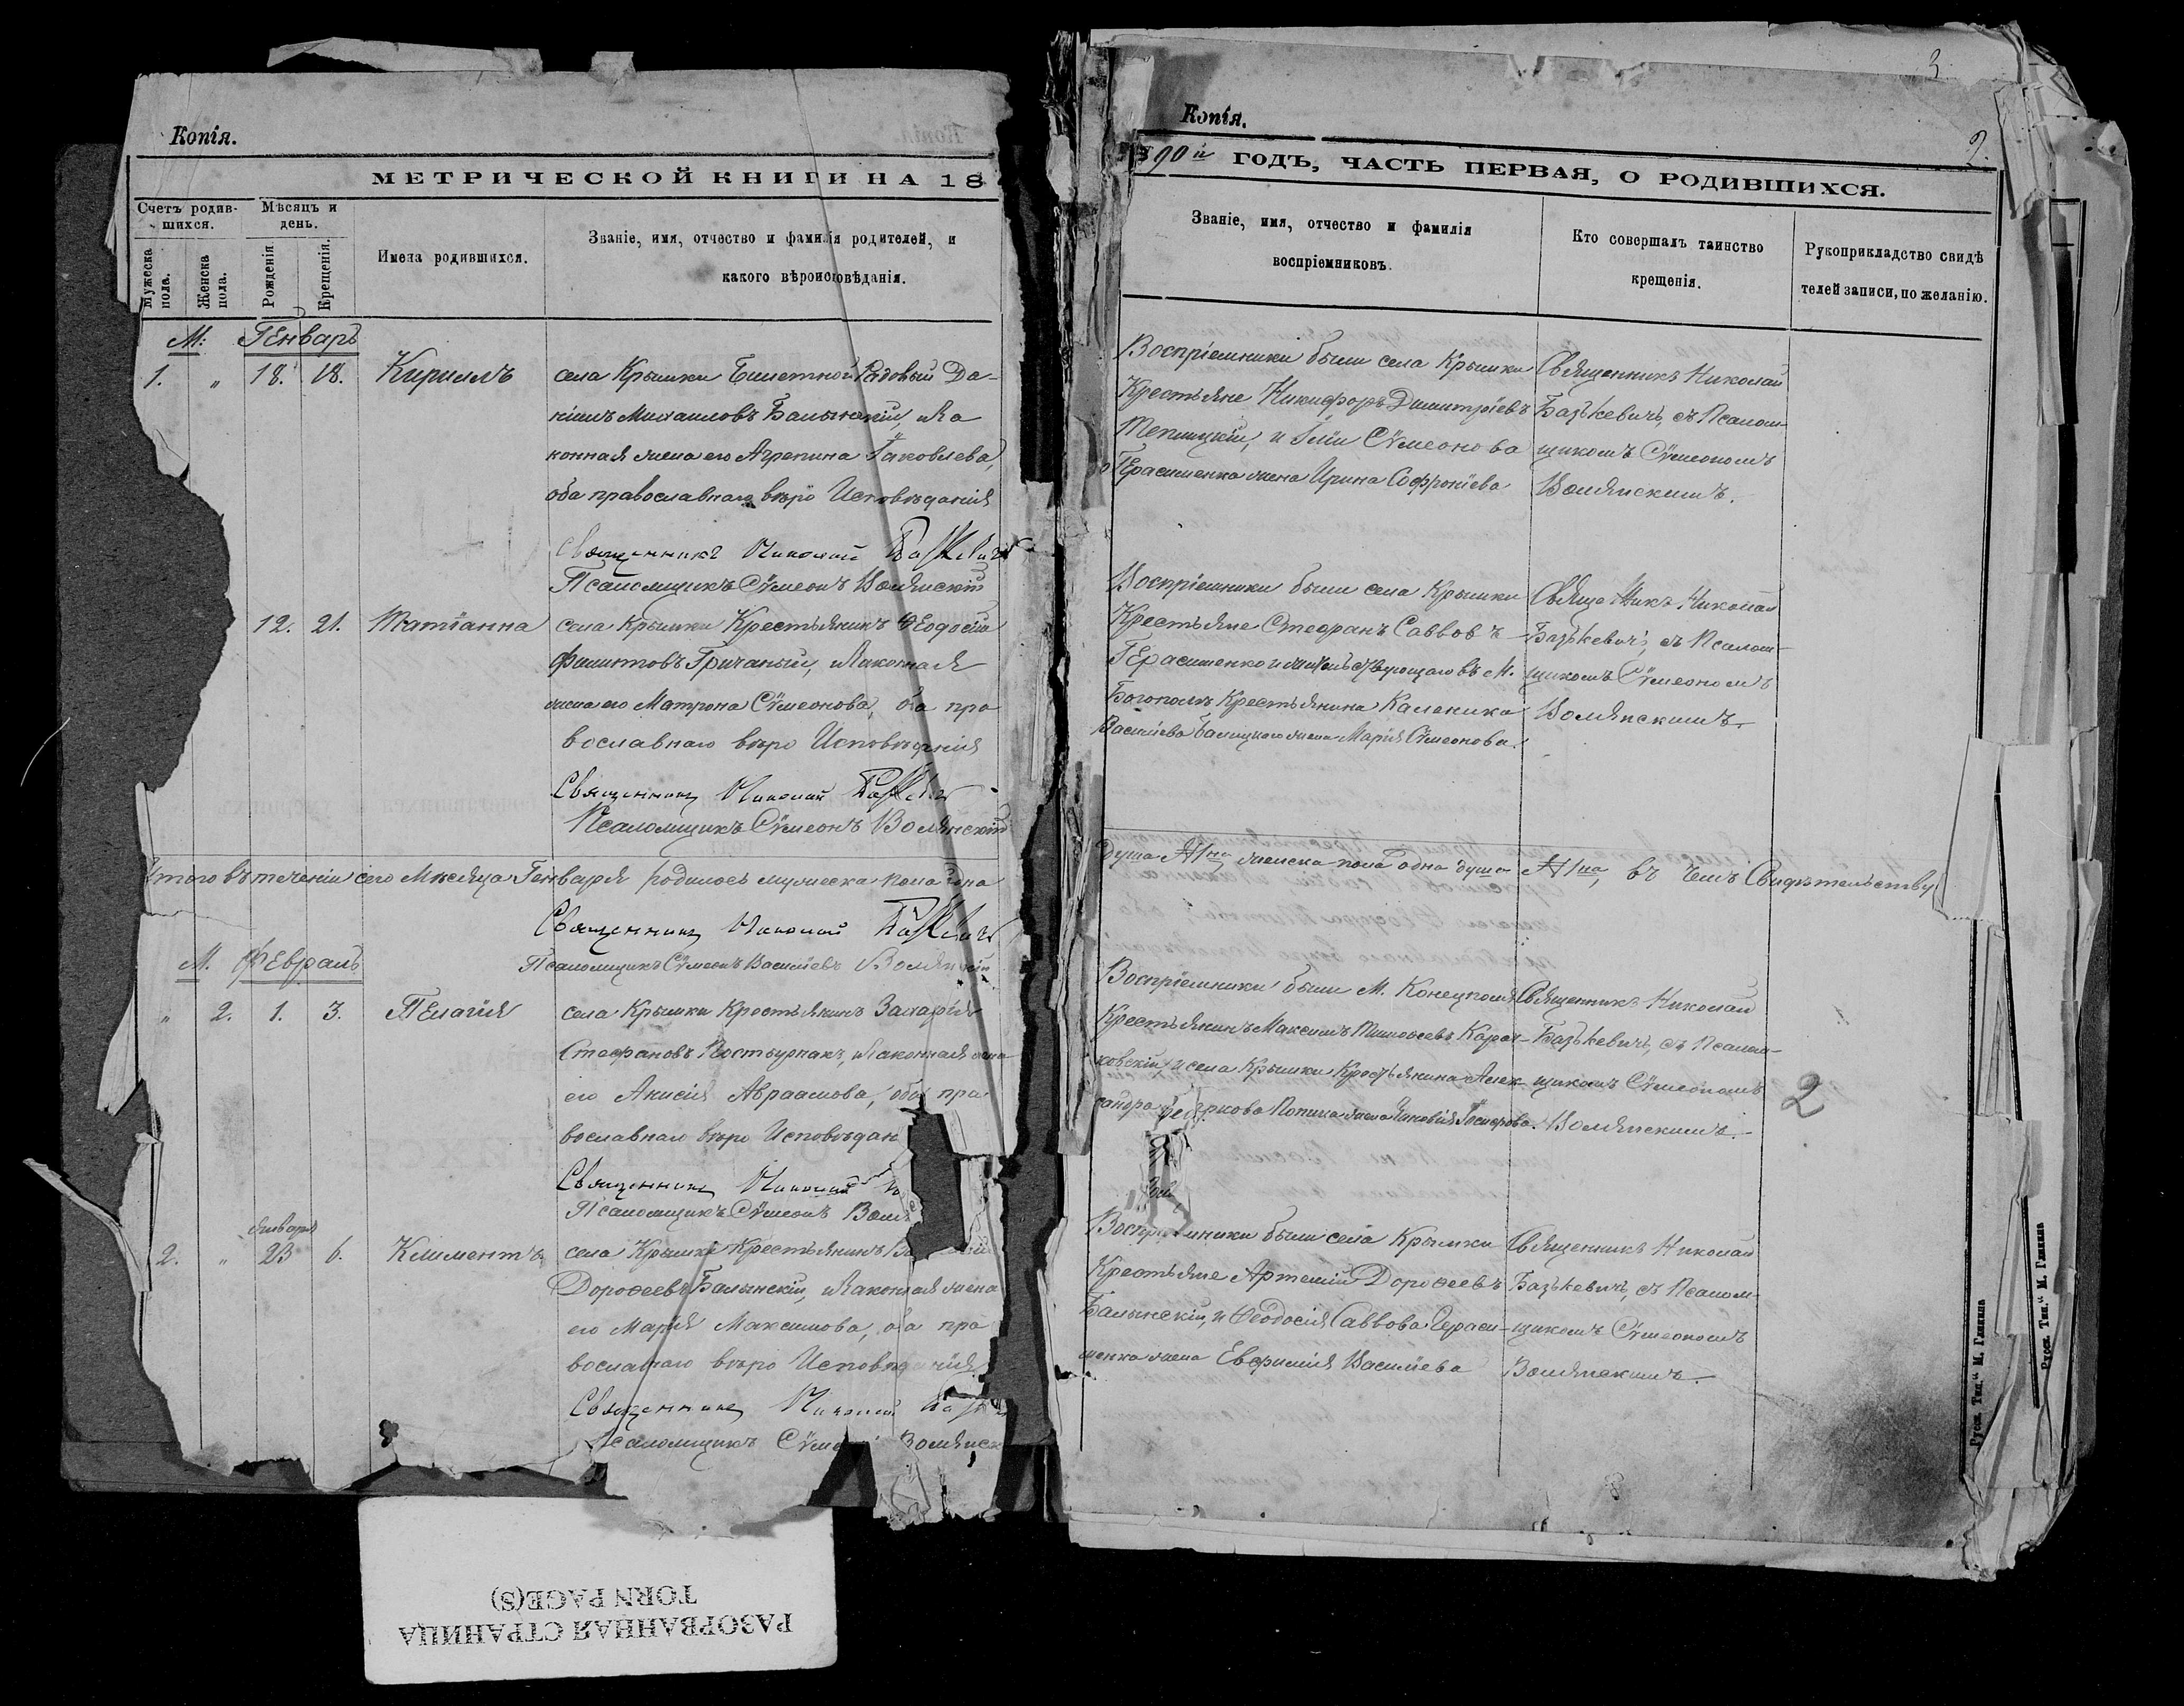 Копія.
МЕТРИЧЕСКОЙ КНИГИ НА 18
Счетъ родив-
шихся.
Мѣсяцъ и
день.
Мужеска
пола.
Женска
пола.
Рожденія
Крещенія.
Имена родившихся.
Званіе, имя, отчество и фамилія родителей, и
какого вѣроисповѣданія.
М: Генварь
1. „ 18. 18. Кириллъ
села Крымки Билетной Рядовый Да-
ніилъ Михаиловъ Балынскій, и за
конная жена его Агрепина Іаковлева,
оба православнаго вѣро Исповѣданія
Священникъ Николай Базькевичъ
Псаломщикъ Сѵмеонъ Волянскій
12. 21. Татіанна
села Крымки Крестьянинъ Ѳеодосій
Филиповъ Гричаный, и законная
жена его Матрона Сѵмеонова, оба пра
вославнаго вѣро Исповѣданія
Священникъ Николай Базькевичъ
Псаломщикъ Сѵмеонъ Волянскій
Итого въ теченіи сего Мѣсяца Генваря родилось мужеска пола одна
Священникъ Николай Базькевичъ
Псаломщикъ Сѵмеонъ Василіевъ Волянскій
М. Февраль
„ 2. 1. 3. Пелагія
села Крымки Крестьянинъ Захарія
Стефановъ и законная жена
его Анисія Авраамова, оба пра
вославнаго вѣро Исповѣдан
Священникъ Николай
Псаломщикъ Сѵмеонъ Воля
Января
2. „ 23 6. Климентъ
села Крымки Крестьянинъ
Дорофеевъ Балынскій, и законная жена
его Марія Максимова, оба пра
вославнаго вѣро Исповѣданія
Священникъ Николай
Псаломщикъ Сѵмео Волянск
РАЗОРВАННАЯ СТРАНИЦА
TORN PAGE(S)
3
Копія.
2.
90й ГОДЪ, ЧАСТЬ ПЕРВАЯ, О РОДИВШИХСЯ.
Званіе, имя, отчество и фамилія
воспріемниковъ.
Кто совершалъ таинство
крещенія.
Рукоприкладство свидѣ
телей записи, по желанію.
Воспріемники были села Крымки
Крестьяне Никифоръ Димитріевъ
Теплицкій, и Іліи Сѵмеонова
Герасименка жена Ирина Софроніева
Священникъ Николай
Базькевичъ, съ Псалом-
щикомъ Сѵмеономъ
Волянскимъ.
Воспріемники были села Крымки
Крестьяне Стефанъ Саввовъ
Герасименко и въ М.
Богополѣ Крестьянина Каленика
Василіева Балицкого жена Марія Сѵмеонова.
Священникъ Николай
Базькевичъ, съ Псалом-
щикомъ Сѵмеономъ
Волянскимъ.
душа №1на женска пола одна душа №1на, въ чемъ Свидѣтельству
Воспріемники были М. Конецполя
Крестьянинъ Максимъ Тимофеевъ Карач-
ковскій, и села Крымки Крестьянина Алек
сандра
Священникъ Николай
Базькевичъ, съ Псалом-
щикомъ Сѵмеономъ
Волянскимъ.
2
Воспріемники были села Крымки
Крестьяне Артемій Дорофеевъ
Балынскій, и Ѳеодосія Саввова Гераси-
менка жена Евфимія Василіева
Священникъ Николай
Базькевичъ, съ Псалом-
щикомъ Сѵмеономъ
Волянскимъ.
Русск. Тип.“ М. Гликна
Русск. Тип.“ М. Гликна